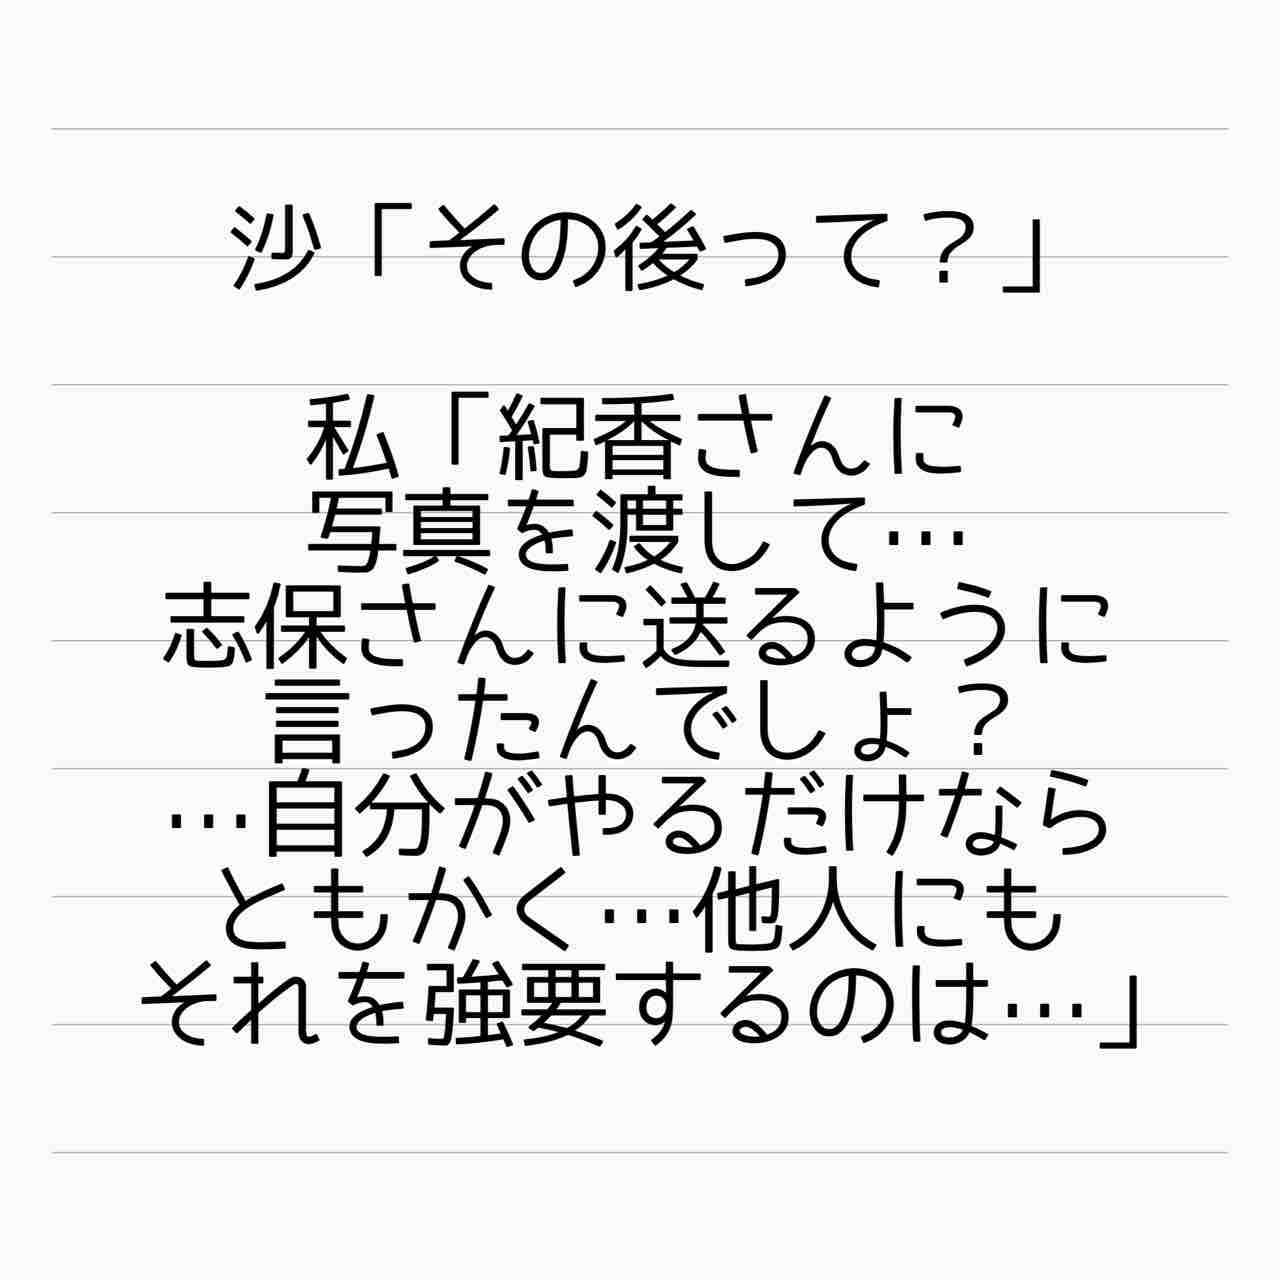 沙「その後って？」
私「紀香さんに
写真を渡して…
志保さんに送るように
言ったんでしょ？
…自分がやるだけなら
ともかく…他人にも
それを強要するのは…」